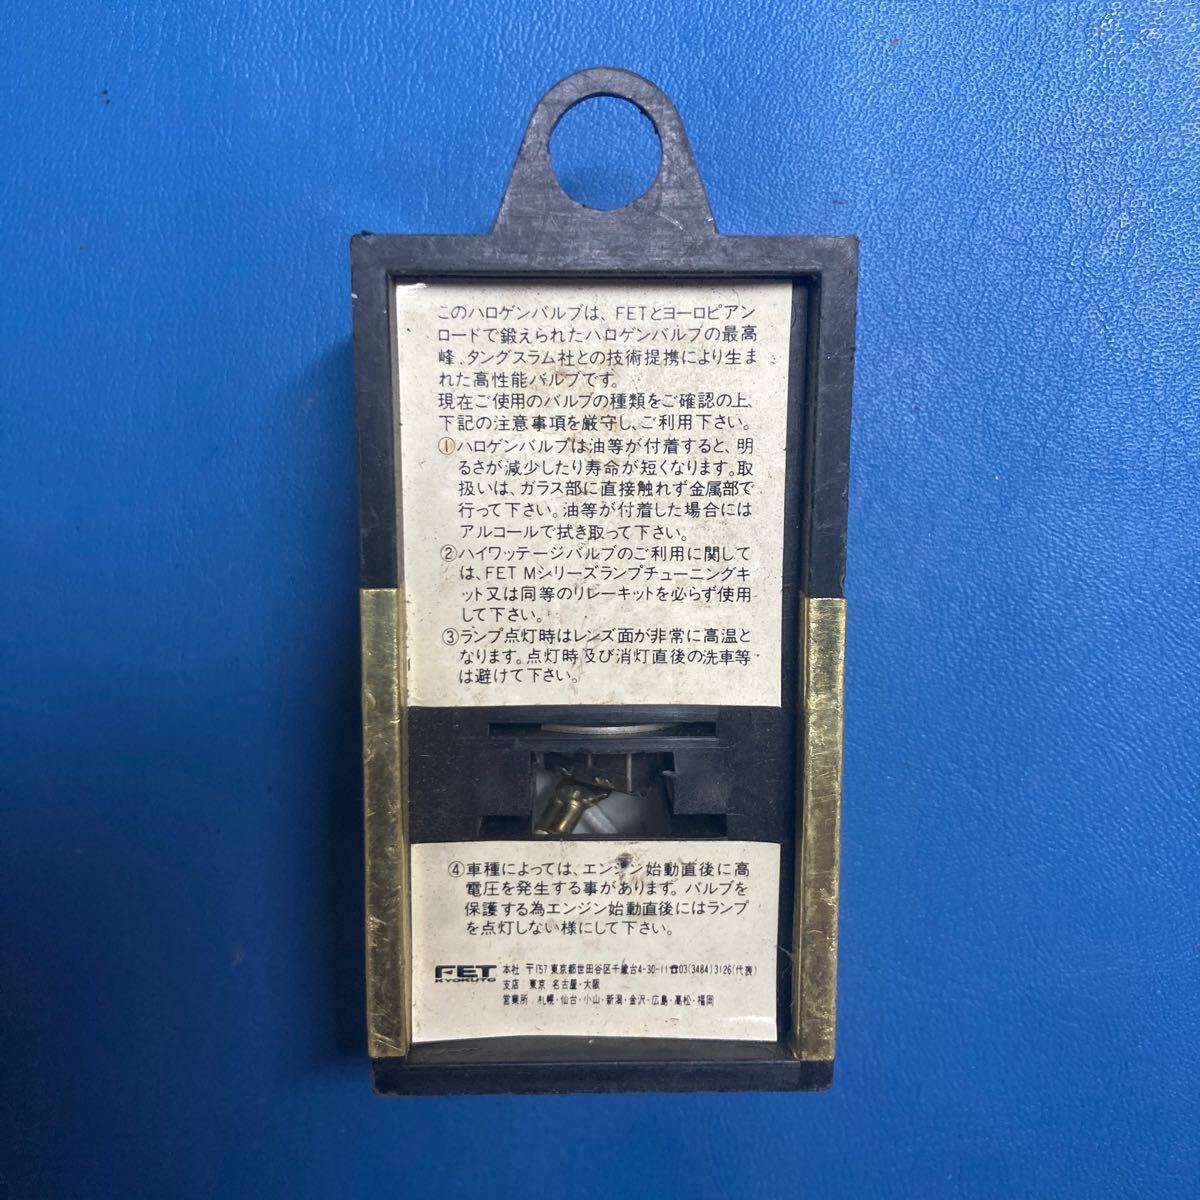 このハロゲンバルブは、FETとヨーロピアン
ロードで鍛えられたハロゲンバルブの最高
峰、タングスラム社との技術提携により生ま
れた高性能バルブです。
現在ご使用のバルブの種類をご確認の上、
下記の注意事項を厳守し、ご利用下さい。
①ハロゲンバルブは油等が付着すると、明
るさが減少したり寿命が短くなります。取
扱いは、ガラス部に直接触れず金属部で
行って下さい。油等が付着した場合には
アルコールで拭き取って下さい。
②ハイワッテージバルブのご利用に関して
は、FET Mシリーズランプチューニングキ
ット又は同等のリレーキットを必らず使用
して下さい。
③ランプ点灯時はレンズ面が非常に高温と
なります。点灯時及び消灯直後の洗車等
は避けて下さい。
④車種によっては、エンジン始動直後に高
電圧を発生する事があります。バルブを
保護する為エンジン始動直後にはランプ
を点灯しない様にして下さい。
FET KYOKUTO 本社 〒157 東京都世田谷区千歳台4-30-11☎03(3484)3126(代表)
支店 東京・名古屋・大阪
営業所 札幌・仙台・小山・新潟・金沢・広島・高松・福岡